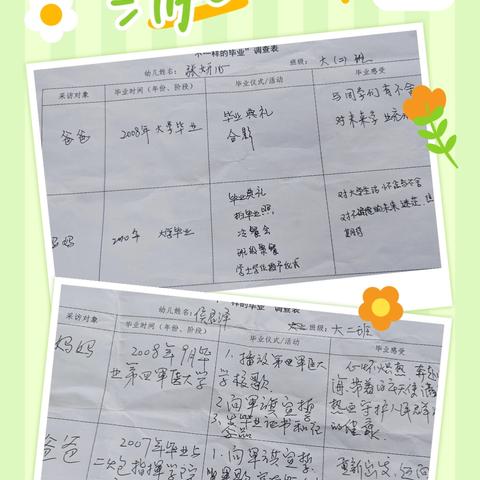 不一样的毕业"调查表
幼儿姓名: 班级: 大(二)班
采访对象 毕业时间(年份、阶段) 毕业仪式/活动 毕业感受
爸爸 2008年 大学毕业 毕业典礼
合影
与同学们有不舍
对未来学业充
妈妈 2010年 大学毕业 毕业典礼
拍毕业照
冷餐会
班级聚餐
学士学位授予仪式
对大学生活 怀念与不舍
对不确定的未来 迷茫、
一样的毕业"调查表
幼儿姓名: 班级: 大二班
采访对象 毕业时间(年份、阶段) 毕业仪式/活动 毕业感受
妈妈 2008年9月毕
业第四军医大学
1.播放第四军医大
学校歌
2.向军旗宣誓
3.发毕业证书和纪
念品
心怀炽热
守护人民群
的健康
爸爸 2007年毕业与
二炮指挥学院
1.向军旗宣誓
重新出发